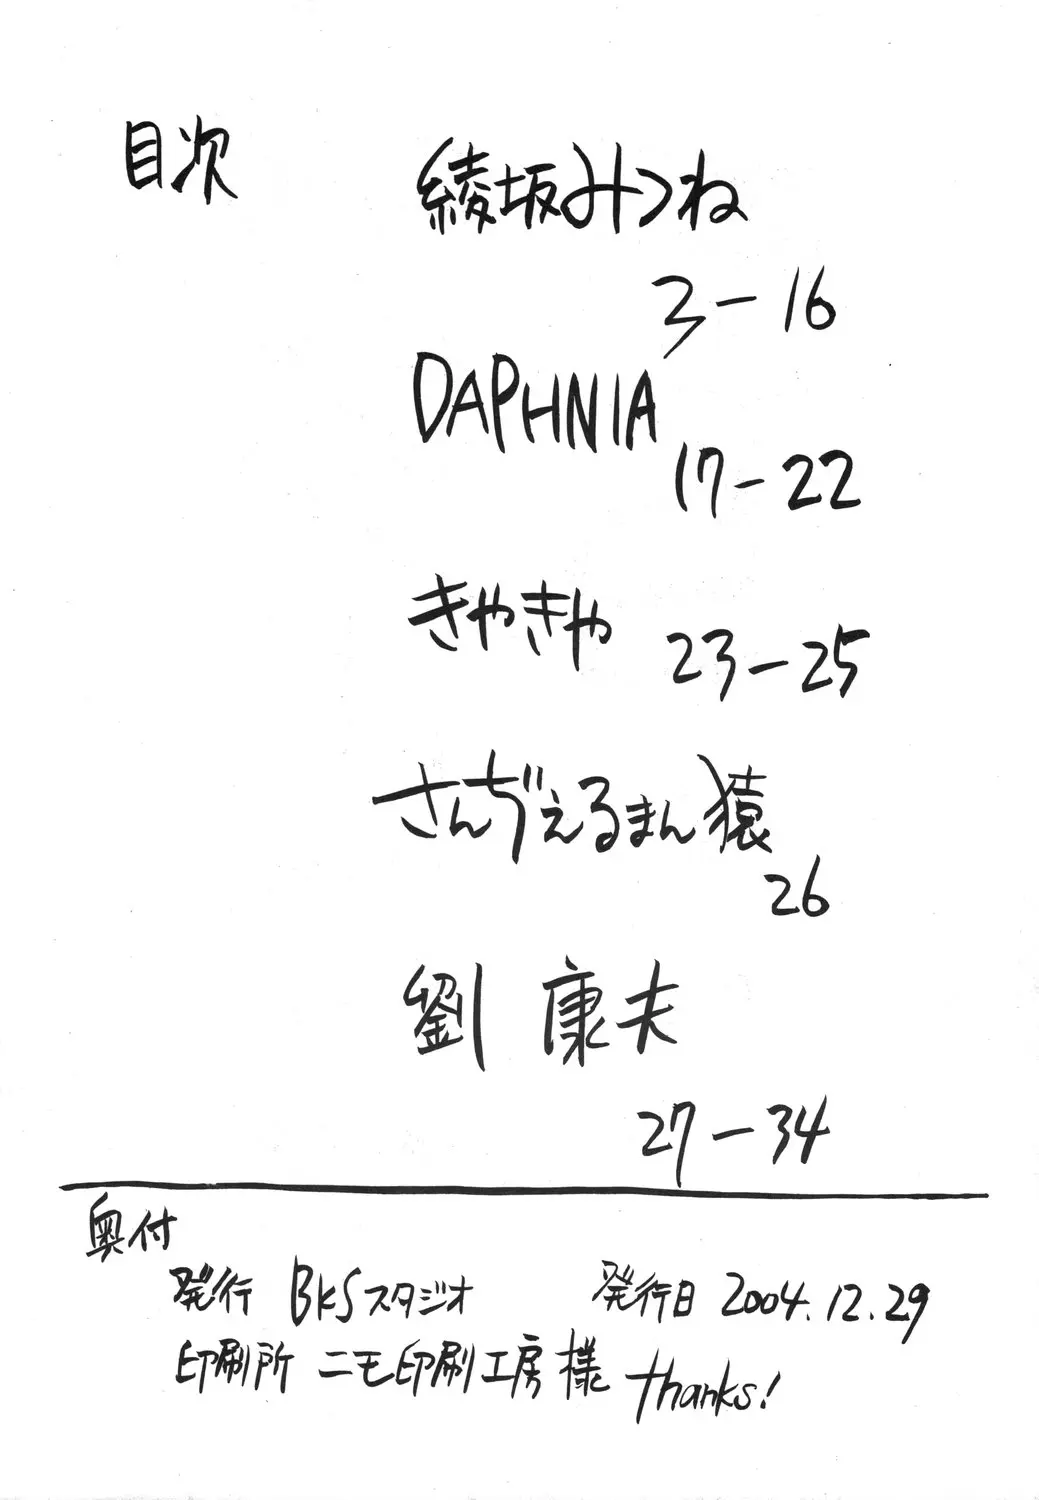 目次
綾坂みつね
3-16
DAPHNIA
17-22
きやきや 23-25
さんぢえるまん猿
26
劉 康夫
27-34
奥付
発行 BKSスタジオ 発行日 2004.12.29
印刷所 ニモ印刷工房様 thanks!